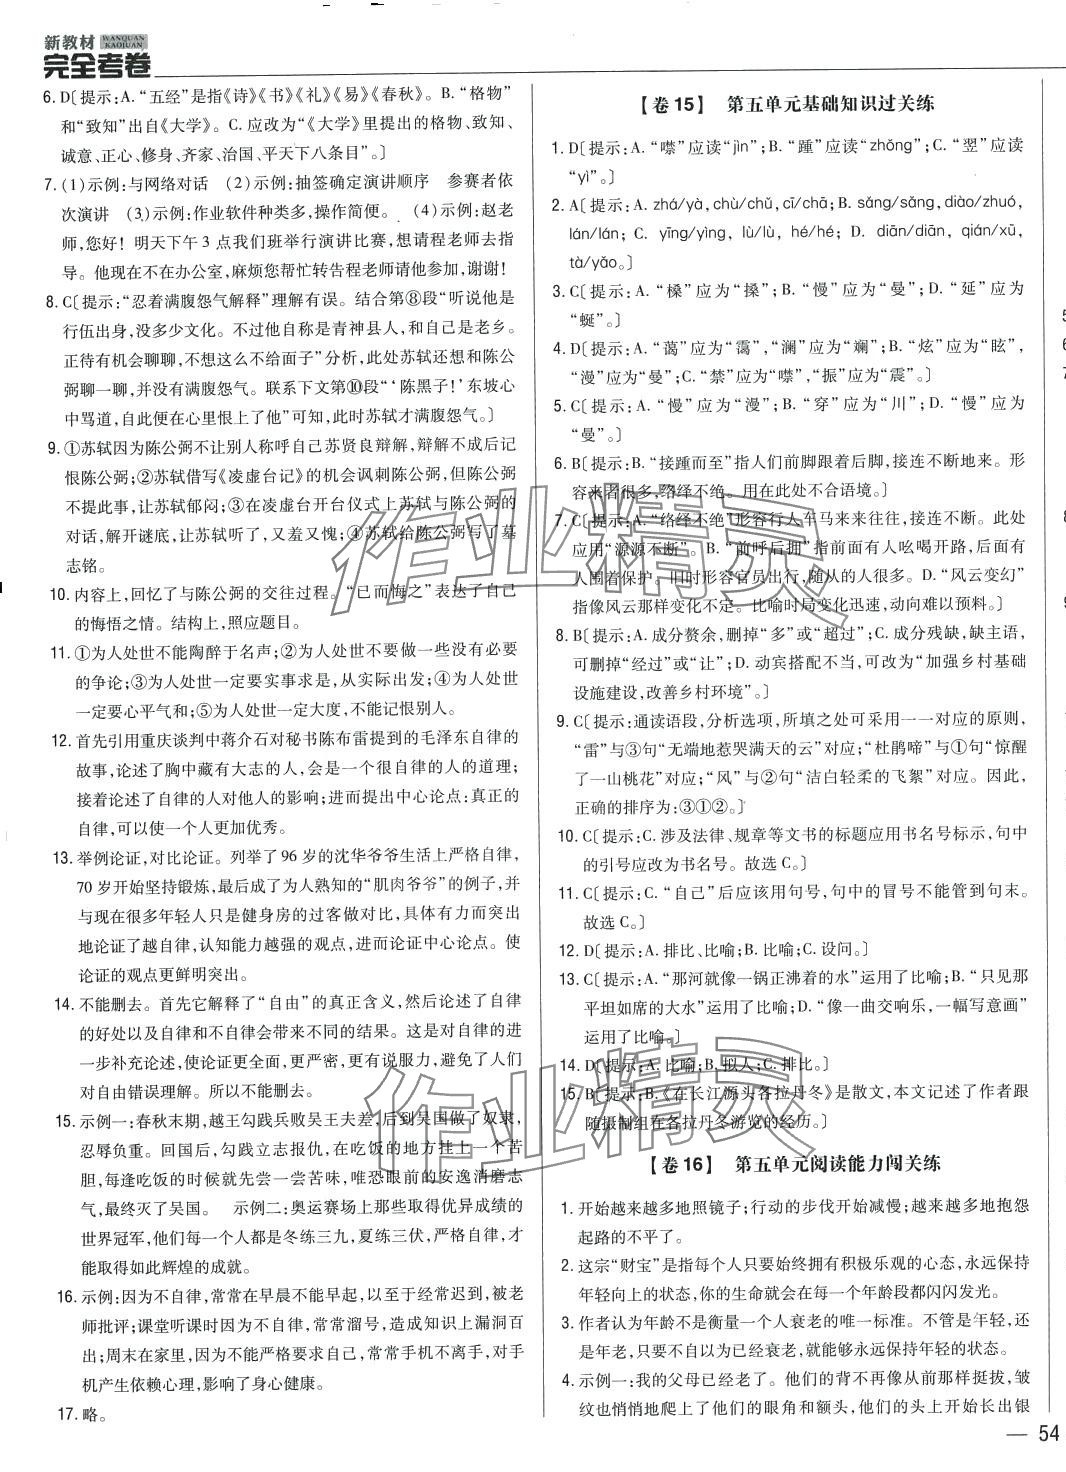 新教材 WANQUAN KAOJUAN
完全考卷
6. D〔提示:A. “五经”是指《诗》《书》《礼》《易》《春秋》。B. “格物”
和“致知”出自《大学》。C. 应改为“《大学》里提出的格物、致知、
诚意、正心、修身、齐家、治国、平天下八条目”。〕
7. (1)示例:与网络对话 (2)示例:抽签确定演讲顺序 参赛者依
次演讲 (3)示例:作业软件种类多,操作简便。 (4)示例:赵老
师,您好! 明天下午3点我们班举行演讲比赛,想请程老师去指
导。他现在不在办公室,麻烦您帮忙转告程老师请他参加,谢谢!
8. C〔提示:“忍着满腹怨气解释”理解有误。结合第⑧段“听说他是
行伍出身,没多少文化。不过他自称是青神县人,和自己是老乡。
正待有机会聊聊,不想这么不给面子”分析,此处苏轼还想和陈公
弼聊一聊,并没有满腹怨气。联系下文第⑩段“‘陈黑子!’东坡心
中骂道,自此便在心里恨上了他”可知,此时苏轼才满腹怨气。〕
9. ①苏轼因为陈公弼不让别人称呼自己苏贤良辩解,辩解不成后记
恨陈公弼;②苏轼借写《凌虚台记》的机会讽刺陈公弼,但陈公弼
不提此事,让苏轼郁闷;③在凌虚台开台仪式上苏轼与陈公弼的
对话,解开谜底,让苏轼听了,又羞又愧;④苏轼给陈公弼写了墓
志铭。
10. 内容上,回忆了与陈公弼的交往过程。“已而悔之”表达了自己
的悔悟之情。结构上,照应题目。
11. ①为人处世不能陶醉于名声;②为人处世不要做一些没有必要
的争论;③为人处世一定要实事求是,从实际出发;④为人处世
一定要心平气和;⑤为人处世一定大度,不能记恨别人。
12. 首先引用重庆谈判中蒋介石对秘书陈布雷提到的毛泽东自律的
故事,论述了胸中藏有大志的人,会是一个很自律的人的道理;
接着论述了自律的人对他人的影响;进而提出中心论点:真正的
自律,可以使一个人更加优秀。
13. 举例论证,对比论证。列举了96岁的沈华爷爷生活上严格自律,
70岁开始坚持锻炼,最后成了为人熟知的“肌肉爷爷”的例子,并
与现在很多年轻人只是健身房的过客做对比,具体有力而突出
地论证了越自律,认知能力越强的观点,进而论证中心论点。使
论证的观点更鲜明突出。
14. 不能删去。首先它解释了“自由”的真正含义,然后论述了自律
的好处以及自律和不自律会带来不同的结果。这是对自律的进
一步补充论述,使论证更全面,更严密,更有说服力,避免了人们
对自由错误理解。所以不能删去。
15. 示例一:春秋末期,越王勾践兵败吴王夫差,后到吴国做了奴隶,
忍辱负重。回国后,勾践立志报仇,在吃饭的地方挂上一个苦
胆,每逢吃饭的时候就先尝一尝苦味,唯恐眼前的安逸消磨志
气,最终灭了吴国。 示例二:奥运赛场上那些取得优异成绩的
世界冠军,他们每一个人都是冬练三九,夏练三伏,严格自律,才
能取得如此辉煌的成就。
16. 示例:因为不自律,常常在早晨不能早起,以至于经常迟到,被老
师批评;课堂听课时因为不自律,常常溜号,造成知识上漏洞百
出;周末在家里,因为不能严格要求自己,常常手机不离手,对手
机产生依赖心理,影响了身心健康。
17. 略。
【卷15】 第五单元基础知识过关练
1. D〔提示:A. “噤”应读“jìn”;B. “踵”应读“zhǒng”;C. “翌”应读
“yì”。〕
2. A〔提示:A. zhá/yà,chù/chǔ,cī/chā;B. sǎng/sǎng,diào/zhuó,
lán/lán;C. yīng/yìng,lù/lù,hé/hé;D. diān/diān,qián/xū,
tà/yǎo。〕
3. C〔提示:A. “槡”应为“搡”;B. “慢”应为“曼”;D. “延”应为
“蜒”。〕
4. D〔提示:A. “蔼”应为“霭”,“澜”应为“斓”;B. “炫”应为“眩”,
“漫”应为“曼”;C. “禁”应为“噤”,“振”应为“震”。〕
5. C〔提示:A. “慢”应为“漫”;B. “穿”应为“川”;D. “慢”应为
“曼”。〕
6. B〔提示:“接踵而至”指人们前脚跟着后脚,接连不断地来。形
容来者很多,络绎不绝。用在此处不合语境。〕
7. C〔提示:A. “络绎不绝”形容行人车马来来往往,接连不断。此处
应用“源源不断”。B. “前呼后拥”指前面有人吆喝开路,后面有
人围着保护。旧时形容官员出行,随从的人很多。D. “风云变幻”
指像风云那样变化不定。比喻时局变化迅速,动向难以预料。〕
8. B〔提示:A. 成分赘余,删掉“多”或“超过”;C. 成分残缺,缺主语,
可删掉“经过”或“让”;D. 动宾搭配不当,可改为“加强乡村基础
设施建设,改善乡村环境”。〕
9. C〔提示:通读语段,分析选项,所填之处可采用一一对应的原则,
“雷”与③句“无端地惹哭满天的云”对应;“杜鹃啼”与①句“惊醒
了一山桃花”对应;“风”与②句“洁白轻柔的飞絮”对应。因此,
正确的排序为:③①②。〕
10. C〔提示:C. 涉及法律、规章等文书的标题应用书名号标示,句中
的引号应改为书名号。故选C。〕
11. C〔提示:C. “自己”后应该用句号,句中的冒号不能管到句末。
故选C。〕
12. D〔提示:A. 排比、比喻;B. 比喻;C. 设问。〕
13. C〔提示:A. “那河就像一锅正沸着的水”运用了比喻;B. “只见那
平坦如席的大水”运用了比喻;D. “像一曲交响乐,一幅写意画”
运用了比喻。〕
14. D〔提示:A. 比喻;B. 拟人;C. 排比。〕
15. B〔提示:B.《在长江源头各拉丹冬》是散文,本文记述了作者跟
随摄制组在各拉丹冬游览的经历。〕
【卷16】 第五单元阅读能力闯关练
1. 开始越来越多地照镜子;行动的步伐开始减慢;越来越多地抱怨
起路的不平了。
2. 这宗“财宝”是指每个人只要始终拥有积极乐观的心态,永远保持
年轻向上的状态,你的生命就会在每一个年龄段都闪闪发光。
3. 作者认为年龄不是衡量一个人衰老的唯一标准。不管是年轻,还
是年老,只要不自以为已经衰老,就能够永远保持年轻的状态。
4. 示例一:我的父母已经老了。他们的背不再像从前那样挺拔,皱
纹也悄悄地爬上了他们的眼角和额头,他们的头上开始长出银
— 54
作业精灵
作业精灵